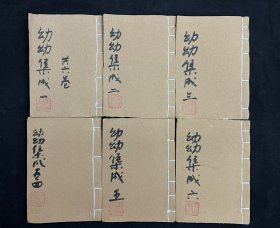 幼幼集成 一
共六卷
幼幼集成 二
幼幼集成 三
幼幼集成 四
幼幼集成 五
幼幼集成 六